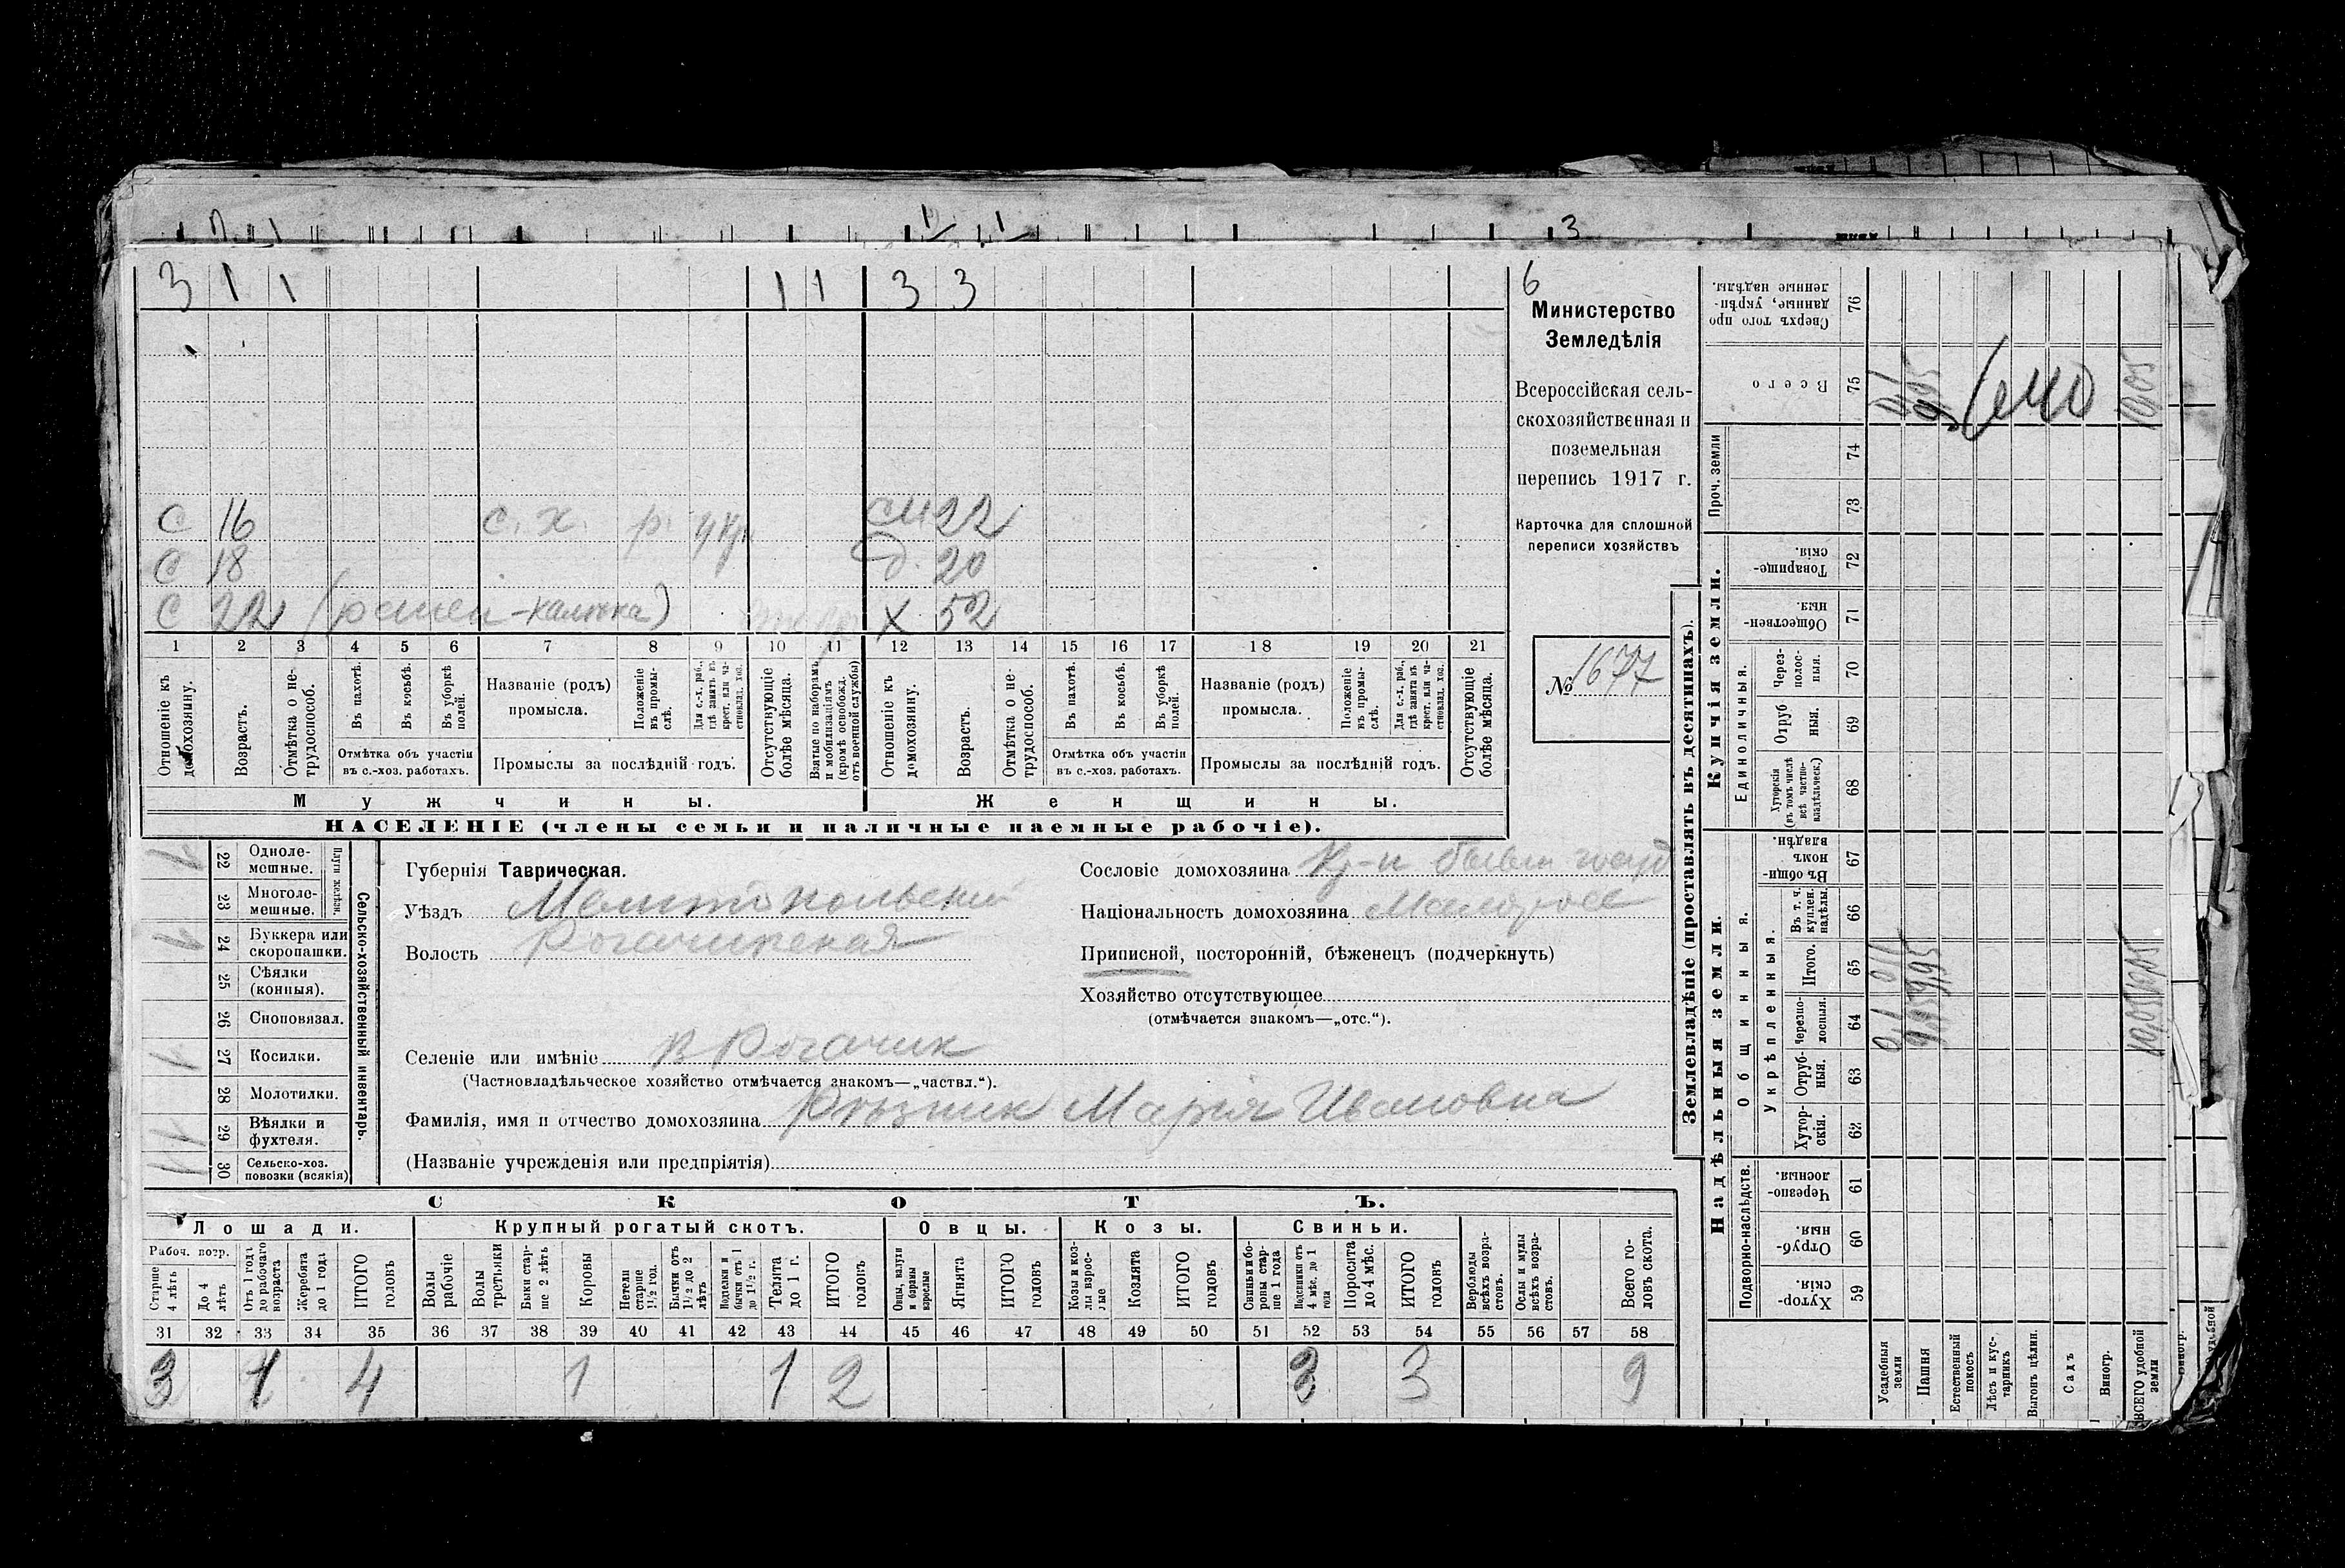 3 1 1 1 1 3 3 6
Министерство
Земледѣлія
Всероссійская сель-
скохозяйственная и
поземельная
перепись 1917 г.
Карточка для сплошной
переписи хозяйствъ
№ 1677
С 16 с. х. р. см 22
С 18 д. 20
С 22 (ранен-калѣка) х 52
1 2 3 4 5 6 7 8 9 10 11 12 13 14 15 16 17 18 19 20 21
Отношеніе къ домохозяину.
Возрастъ.
Отмѣтка о не-трудоспособ.
Въ пахотѣ.
Въ косьбѣ.
Въ уборкѣ полей.
Отмѣтка объ участіи
въ с.-хоз. работахъ.
Названіе (родъ)
промысла.
Положеніе въ промы-слѣ.
Для с.-х. раб., гдѣ занятъ въ крест. или ча-стновлад. хоз.
Промыслы за послѣдній годъ.
Отсутствующіе болѣе мѣсяца.
Взятые по наборамъ и мобилизаціямъ (кромѣ освобожд. отъ военной службы)
Отношеніе къ домохозяину.
Возрастъ.
Отмѣтка о не-трудоспособ.
Въ пахотѣ.
Въ косьбѣ.
Въ уборкѣ полей.
Отмѣтка объ участіи
въ с.-хоз. работахъ.
Названіе (родъ)
промысла.
Положеніе въ промы-слѣ.
Для с.-х. раб., гдѣ занятъ въ крест. или ча-стновлад. хоз.
Промыслы за послѣдній годъ.
Отсутствующіе болѣе мѣсяца.
Мужчины. Женщины.
НАСЕЛЕНІЕ (члены семьи и наличные наемные рабочіе).
22 Одноле-мешные.
23 Многоле-мешные.
Плуги желѣзн.
24 Буккера или скоропашки.
25 Сѣялки (конныя).
26 Сноповязал.
27 Косилки.
28 Молотилки.
29 Вѣялки и фухтеля.
30 Сельско-хоз. повозки (всякія)
Сельско-хозяйственный инвентарь.
Губернія Таврическая.
Уѣздъ Мелитопольский
Волость Рогачикская
Селеніе или имѣніе В Рогачик
(Частновладѣльческое хозяйство отмѣчается знакомъ—„частвл.“).
Фамилія, имя и отчество домохозяина Рѣзник Марія Ивановна
(Названіе учрежденія или предпріятія)
Сословіе домохозяина Кр-н бывш госуд
Національность домохозяина Малоросс
Приписной, посторонній, бѣженецъ (подчеркнуть)
Хозяйство отсутствующее
(отмѣчается знакомъ—„отс.“).
СКОТЪ.
Лошади. Крупный рогатый скотъ. Овцы. Козы. Свиньи.
Рабоч. возр.
Старше 4 лѣтъ
До 4 лѣтъ
Отъ 1 года до рабочаго возраста
Жеребята до 1 года
ИТОГО головъ
Волы рабочіе
Волы третьяки
Быки стар-ше 2 лѣтъ
Коровы
Нетели старше 1½ год.
Бычки отъ 1½ до 2 лѣтъ
Телята до 1 г.
ИТОГО головъ
Овцы, валухи и бараны взрослые
Ягнята
ИТОГО головъ
Козы и коз-лы взрос-лые
Козлята
ИТОГО головъ
Свиньи и бо-ровы стар-ше 1 года
Подсвинки отъ 4 мѣс. до 1 года
Поросята до 4 мѣс.
ИТОГО головъ
Верблюды всѣхъ возра-стовъ.
Ослы и мулы всѣхъ возра-стовъ.
Всего го-ловъ скота.
31 32 33 34 35 36 37 38 39 40 41 42 43 44 45 46 47 48 49 50 51 52 53 54 55 56 57 58
3 1 4 1 1 2 3 3 9
Землевладѣніе (проставлять въ десятинахъ).
Надѣльныя земли. Купчія земли.
Подворно-наслѣдств.
Общинныя.
Укрѣпленныя.
Единоличныя.
Проч. земли
59 Хутор-скія.
60 Отруб-ныя.
61 Черезпо-лосныя.
62 Хутор-скія.
63 Отруб-ныя.
64 Черезпо-лосныя.
65 Итого.
66 Въ т. ч. куплен. надѣлы.
67 Въ общин-номъ владѣн.
68 Хуторскія (въ томъ числѣ всѣ частно-владѣльческ.)
69 Отруб ныя.
70 Через-полос-ныя.
71 Обществен-ныя.
72 Товарище-скія.
73
74
75 Всего
76 Сверхъ того про данные, укрѣп-ленные надѣлы.
Усадебныя земли
Пашня
Естественный покосъ
Лѣсъ и кус-тарникъ
Выгонъ цѣлин.
Садъ
Виногр.
ВСЕГО удобной земли